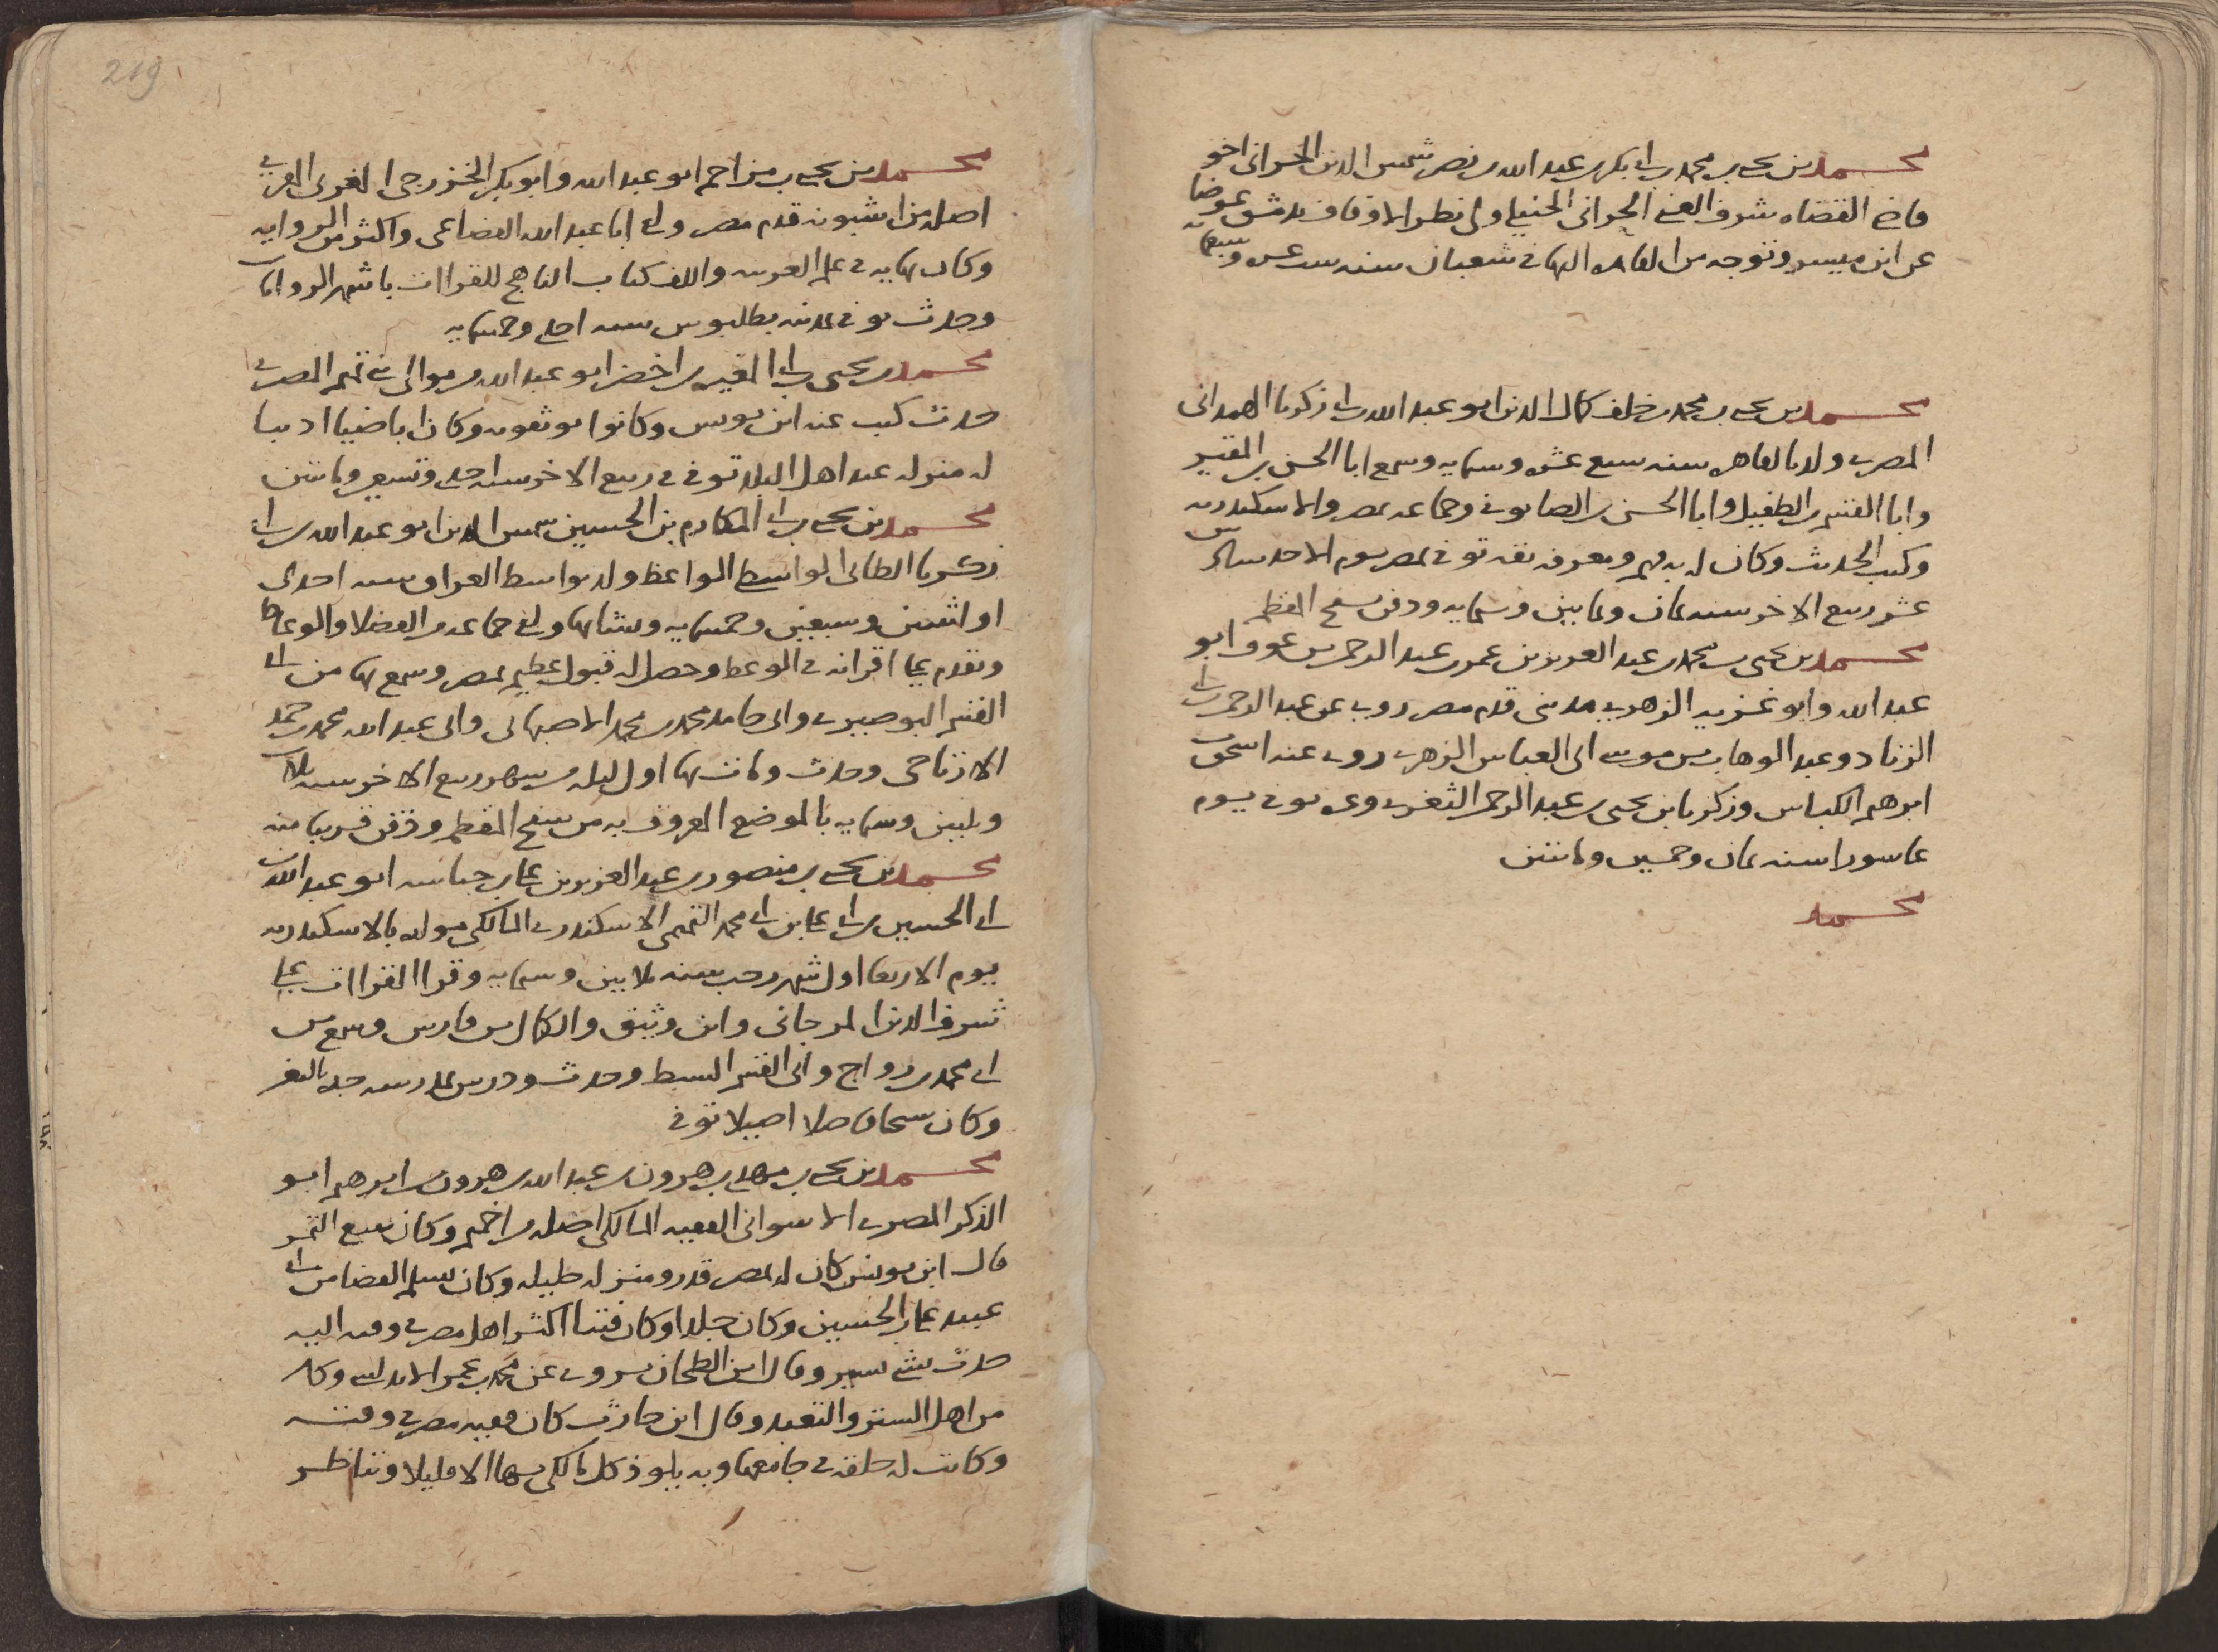 محمد بن يحيى بن محمد بن ابى بكر بن عبد الله بن نصر شمس الدين الحرانى اخو
قاضى القضاه شرف الغنى الحرانى الحنبلى ولى نظر الاوقاف بدمشق عوضا
عن ابن ميسر وتوجه من القاهره اليها فى شعبان سنه ست عشره وسبعمايه
محمد بن يحيى بن محمد بن خلف كمال الدين ابو عبد الله بن ابى زكريا الهمدانى
المصرى ولد بالقاهره سنه سبع عشره وستمايه وسمع ابا الحسن بن المقير
وابا القسم بن الطفيل وابا الحسن بن الصابونى وجماعه بمصر والاسكندريه
وكتب الحديث وكان له به فهم ومعرفه ثقه توفى بمصر يوم الاحد سادس
عشر ربيع الاخر سنه ثمان وثمانين وستمايه ودفن بسفح المقطم
محمد بن يحيى بن محمد بن عبد العزيز بن عمر بن عبد الرحمن بن عوف ابو
عبد الله وابو غزيه الزهرى مدنى قدم مصر روى عن عبد الرحمن بن ابى
الزناد وعبد الوهاب بن موسى ابى العباس الزهرى روى عنه اسحق بن
ابرهيم الكباس وزكريا بن يحيى بن عبد الرحمن الثغرى وغيره توفى يوم
عاشورا سنه ثمان وخمسين ومائتين
محمد
219
محمد بن يحيى بن مزاحم ابو عبد الله وابو بكر الخزرجى اللغوى المقرى
اصله من اشبونه قدم مصر ولقى ابا عبد الله القضاعى واكثر من الروايه
وكان نهايه فى علم العربيه والف كتاب الناهج للقراات باشهر الروايات
وحدث توفى بمدينه بطليوس سنه احدى وخمسمايه
محمد بن يحيى بن ابى المغيره بن اخضر ابو عبد الله من موالى بنى تميم المصرى
حدث كتب عنه ابن يونس وكانوا يوثقونه وكان اباضيا اديبا
له منزله عند اهل البلد توفى فى ربيع الاخر سنه احدى وتسعين ومائتين
محمد بن يحيى بن ابى المكارم بن الحسين شمس الدين ابو عبد الله بن ابى
زكريا الطائى الواسطى الواعظ ولد بواسط العراق سنه احدى
او اثنتين وسبعين وخمسمايه ونشا بها ولقى جماعه من الفضلا والوعاظ
وتقدم على اقرانه فى الوعظ وحصل له قبول عظيم بمصر وسمع بها من ابى
القسم البوصيرى وابى حامد محمد بن محمد الاصبهانى وابى عبد الله محمد بن حمد
الارتاحى وحدث ومات بها اول ليله من شهر ربيع الاخر سنه ثلاث
وثلثين وستمايه بالموضع المعروف به من سفح المقطم ودفن قريبا منه
محمد بن يحيى بن منصور بن عبد العزيز بن على بن حباسه ابو عبد الله بن
ابى الحسين بن ابى على بن ابى محمد التميمى الاسكندرى المالكى مولده بالاسكندريه
يوم الاربعا اول شهر رجب سنه ثلاثين وستمايه وقرا القراات على
شرف الدين المرجانى وابن وثيق والكمال بن فارس وسمع من
ابى محمد بن رواج وابى القسم السبط وحدث ودرس بمدرسه جده بالثغر
وكان شيخا فاضلا اصيلا توفى
محمد بن يحيى بن مهدى بن هرون بن عبد الله بن هرون بن ابرهيم ابو
الذكر المصرى الاسوانى الفقيه المالكى اصله من اخميم وكان يبيع التمر
قال ابن يونس كان له بمصر قدر ومنزله جليله وكان تسلم القضا من ابى
عبيد على بن الحسين وكان جلدا وكان فتيا اكثر اهل مصر فى وقته اليه
حدث بشى يسير وقال ابن الطحان يروى عن محمد بن عمر الاندلسى وكان
من اهل الستر والتعبد وقال ابن حارث كان فقيه مصر فى وقته
وكانت له حلقه فى جامعها وبه يلوذ كل مالكى بها الا قليلا وتناظر